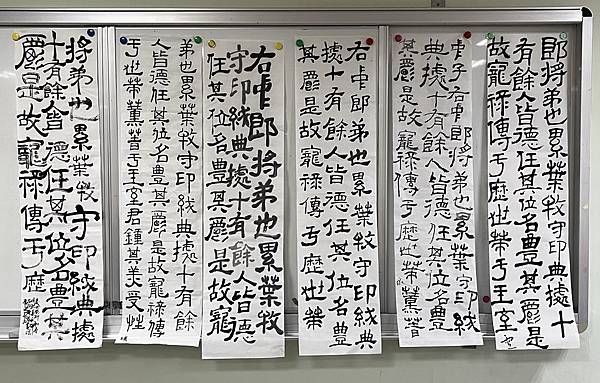 郎將弟也累葉牧守印典據十
有餘人皆德任其位名豐其爵是
故寵祿傳于歷世榮于王室
中子右中郎將弟也累葉守印紱
典據十有餘人皆德任其位名豐
其爵是故寵祿傳于歷世榮薰著
右中郎弟也累葉牧守印紱典
據十有餘人皆德任其位名豐
其爵是故寵祿傳于歷世榮
右中郎將弟也累葉牧
守印紱典據十有餘人皆德
任其位名豐其爵是故寵
弟也累葉牧守印紱典據十有餘
人皆德任其位名豐其爵是故寵祿傳
于世榮薰著于王室君鍾其美受性
將弟也累葉牧守印紱典據
十有餘人皆德任其位名豐其
爵是故寵祿傳于歷